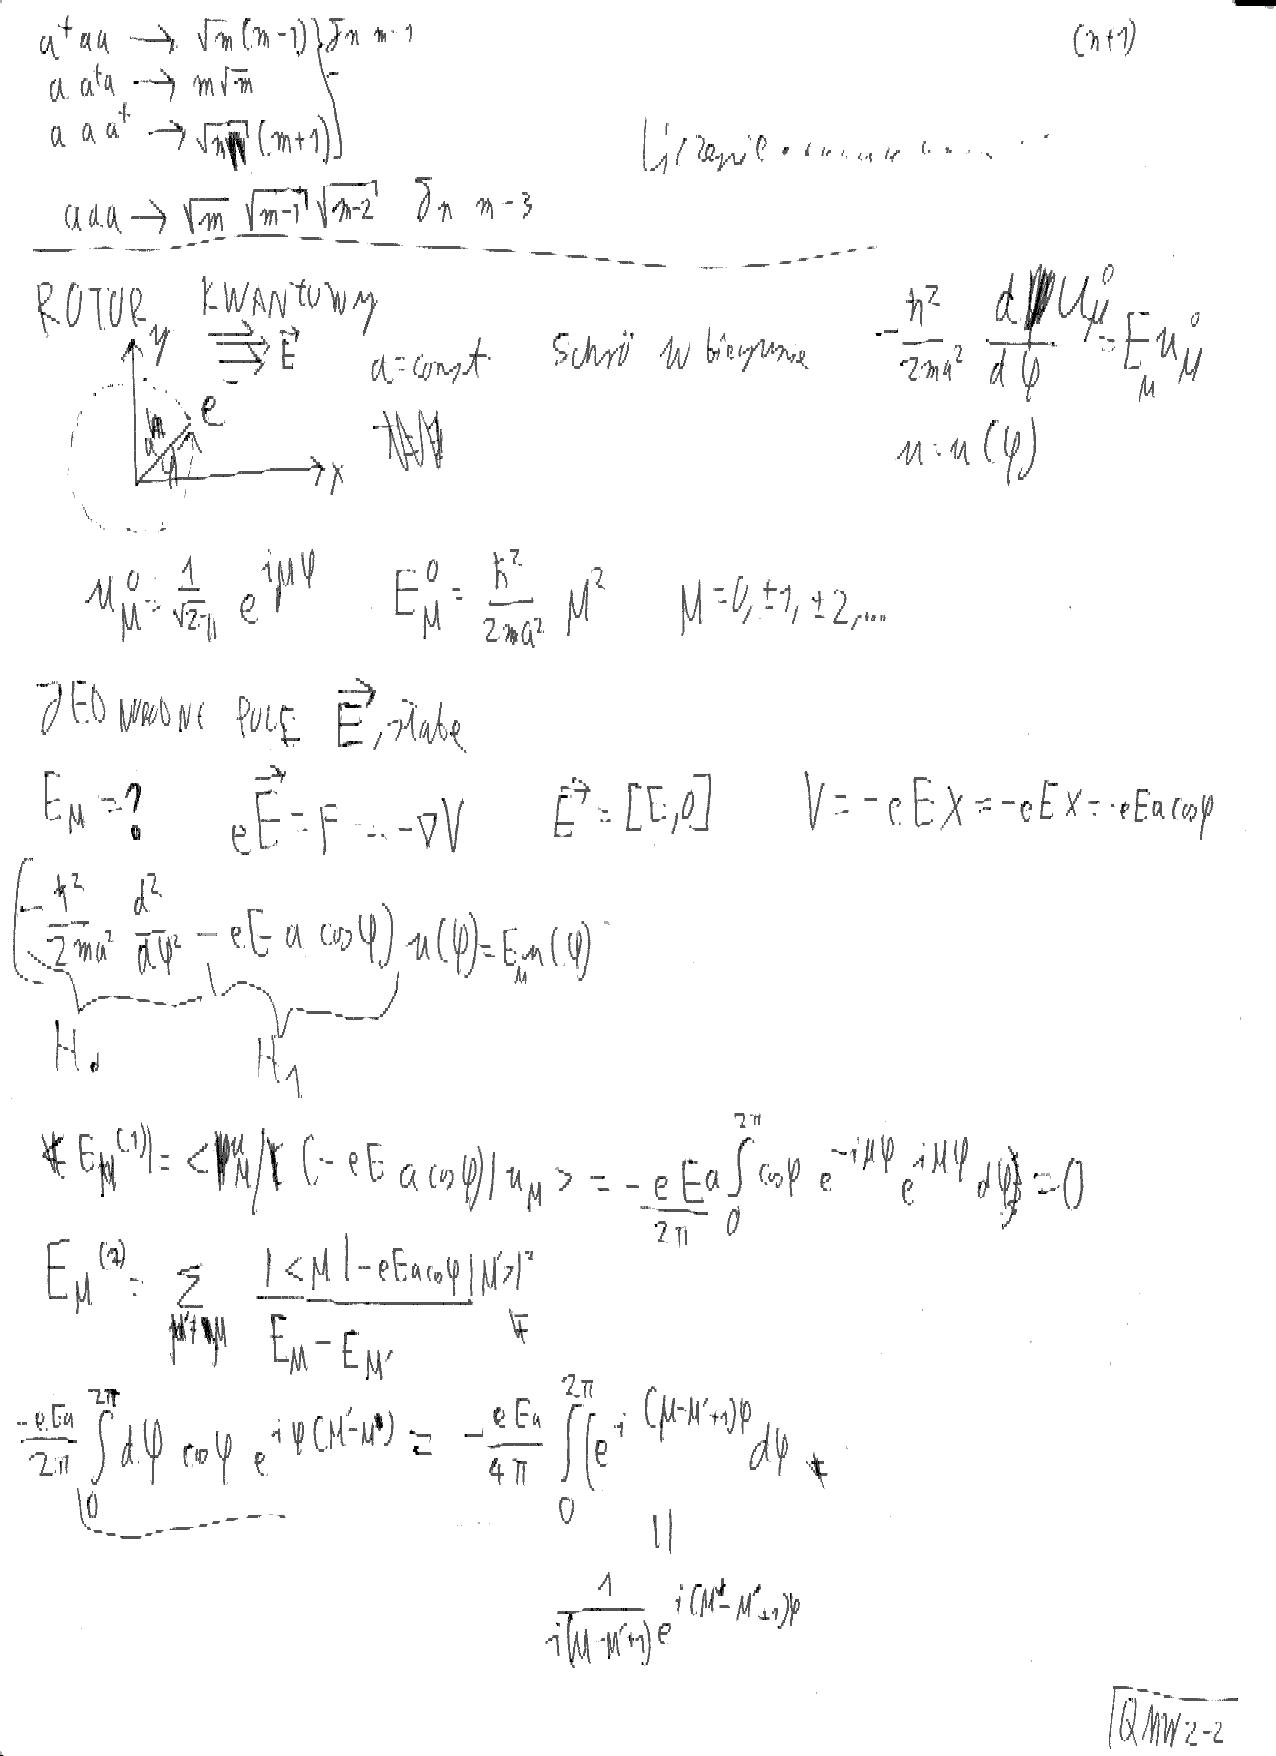 a⁺aa → √m (m-1) } δn m-1
(n+1)
a a⁺a → m√m
a a a⁺ → (m+1)
Liczenie
aaa → √m √m-1 √m-2 δn m-3
ROTOR KWANTOWY
y E⃗ a = const Schrö w biegunie -ħ²/2ma² d U⁰M/dφ = EM u⁰M
e
a φ x
u = u(φ)
u⁰M = 1/√2π e^iMφ E⁰M = ħ²/2ma² M² M = 0, ±1, ±2, ...
JEDNORODNE POLE E⃗, słabe
EM = ? eE⃗ = F = -∇V E⃗ = [E, 0] V = -eEX = -eEx = -eEa cosφ
(-ħ²/2ma² d²/dφ² - eE a cosφ) u(φ) = EM u(φ)
H₀ H₁
EM⁽¹⁾ = <uM| (-eE a cosφ) | uM> = -eEa/2π ∫₀^2π cosφ e^-iMφ e^iMφ dφ = 0
EM⁽²⁾ = Σ M'≠M |<M|-eEa cosφ|M'>|² / EM - EM'
-eEa/2π ∫₀^2π dφ cosφ e^iφ(M'-M) = -eEa/4π ∫₀^2π (e^i(M-M'+1)φ dφ
||
1/i(M-M'+1) e^i(M-M'+1)φ
QMW2-2